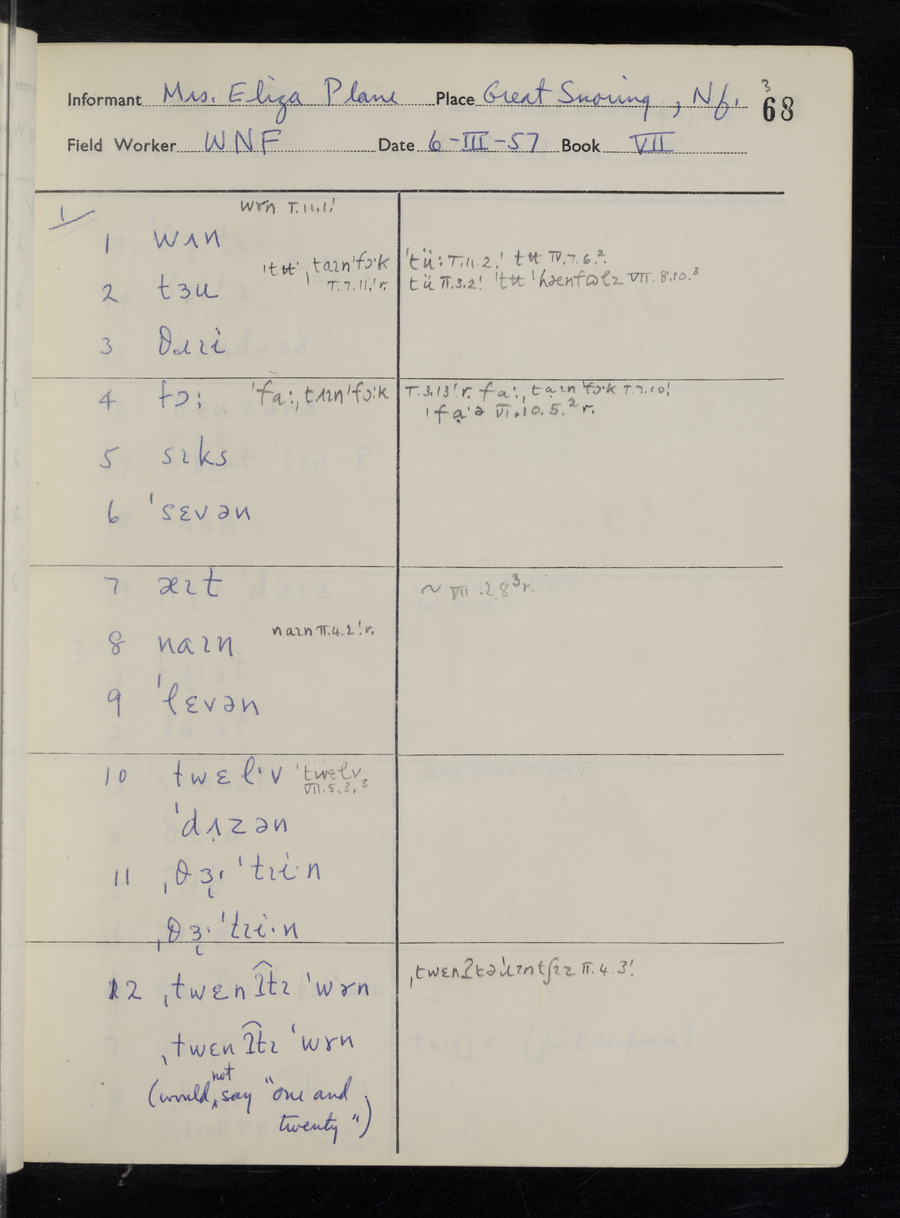 Informant Mrs. Eliza Plane Place Great Snoring, Nf. 3 68
Field Worker WNF Date 6-III-57 Book VII
1
wɤn T.11.1!
1 wʌn
'tʉ', taɪn'fɔ'k T.7.11!r.
'tü: T.11.2! tʉ IV.7.6.²
2 tɜu
tü II.3.2! 'tʉ 'hæenfɷlz VII.8.10.³
3 θɹɪi
4 fɔ: 'fa:, tʌɪn'fɔ'k T.3.13!r. fa:, taɪn'fɔ'k T.7.10!
'fa'ə VI.10.5.²r.
5 sɪks
6 'sɛvən
7 æɪt ~ VII.2.8³r.
8 naɪn naɪn II.4.2!r.
9 'lɛvən
10 twɛl·v 'twɛlv
VII.5.3.³
'dʌzən
11 ˌθɜ· 'tɪi·n
ˌθɜ· 'tɪi·n
12 ˌtwɛnʔtɪ 'wɤn
ˌtwɛnʔtə'ɹɪntʃɪz II.4.3!
ˌtwɛnʔtɪ 'wɤn
(would not say "one and
twenty")